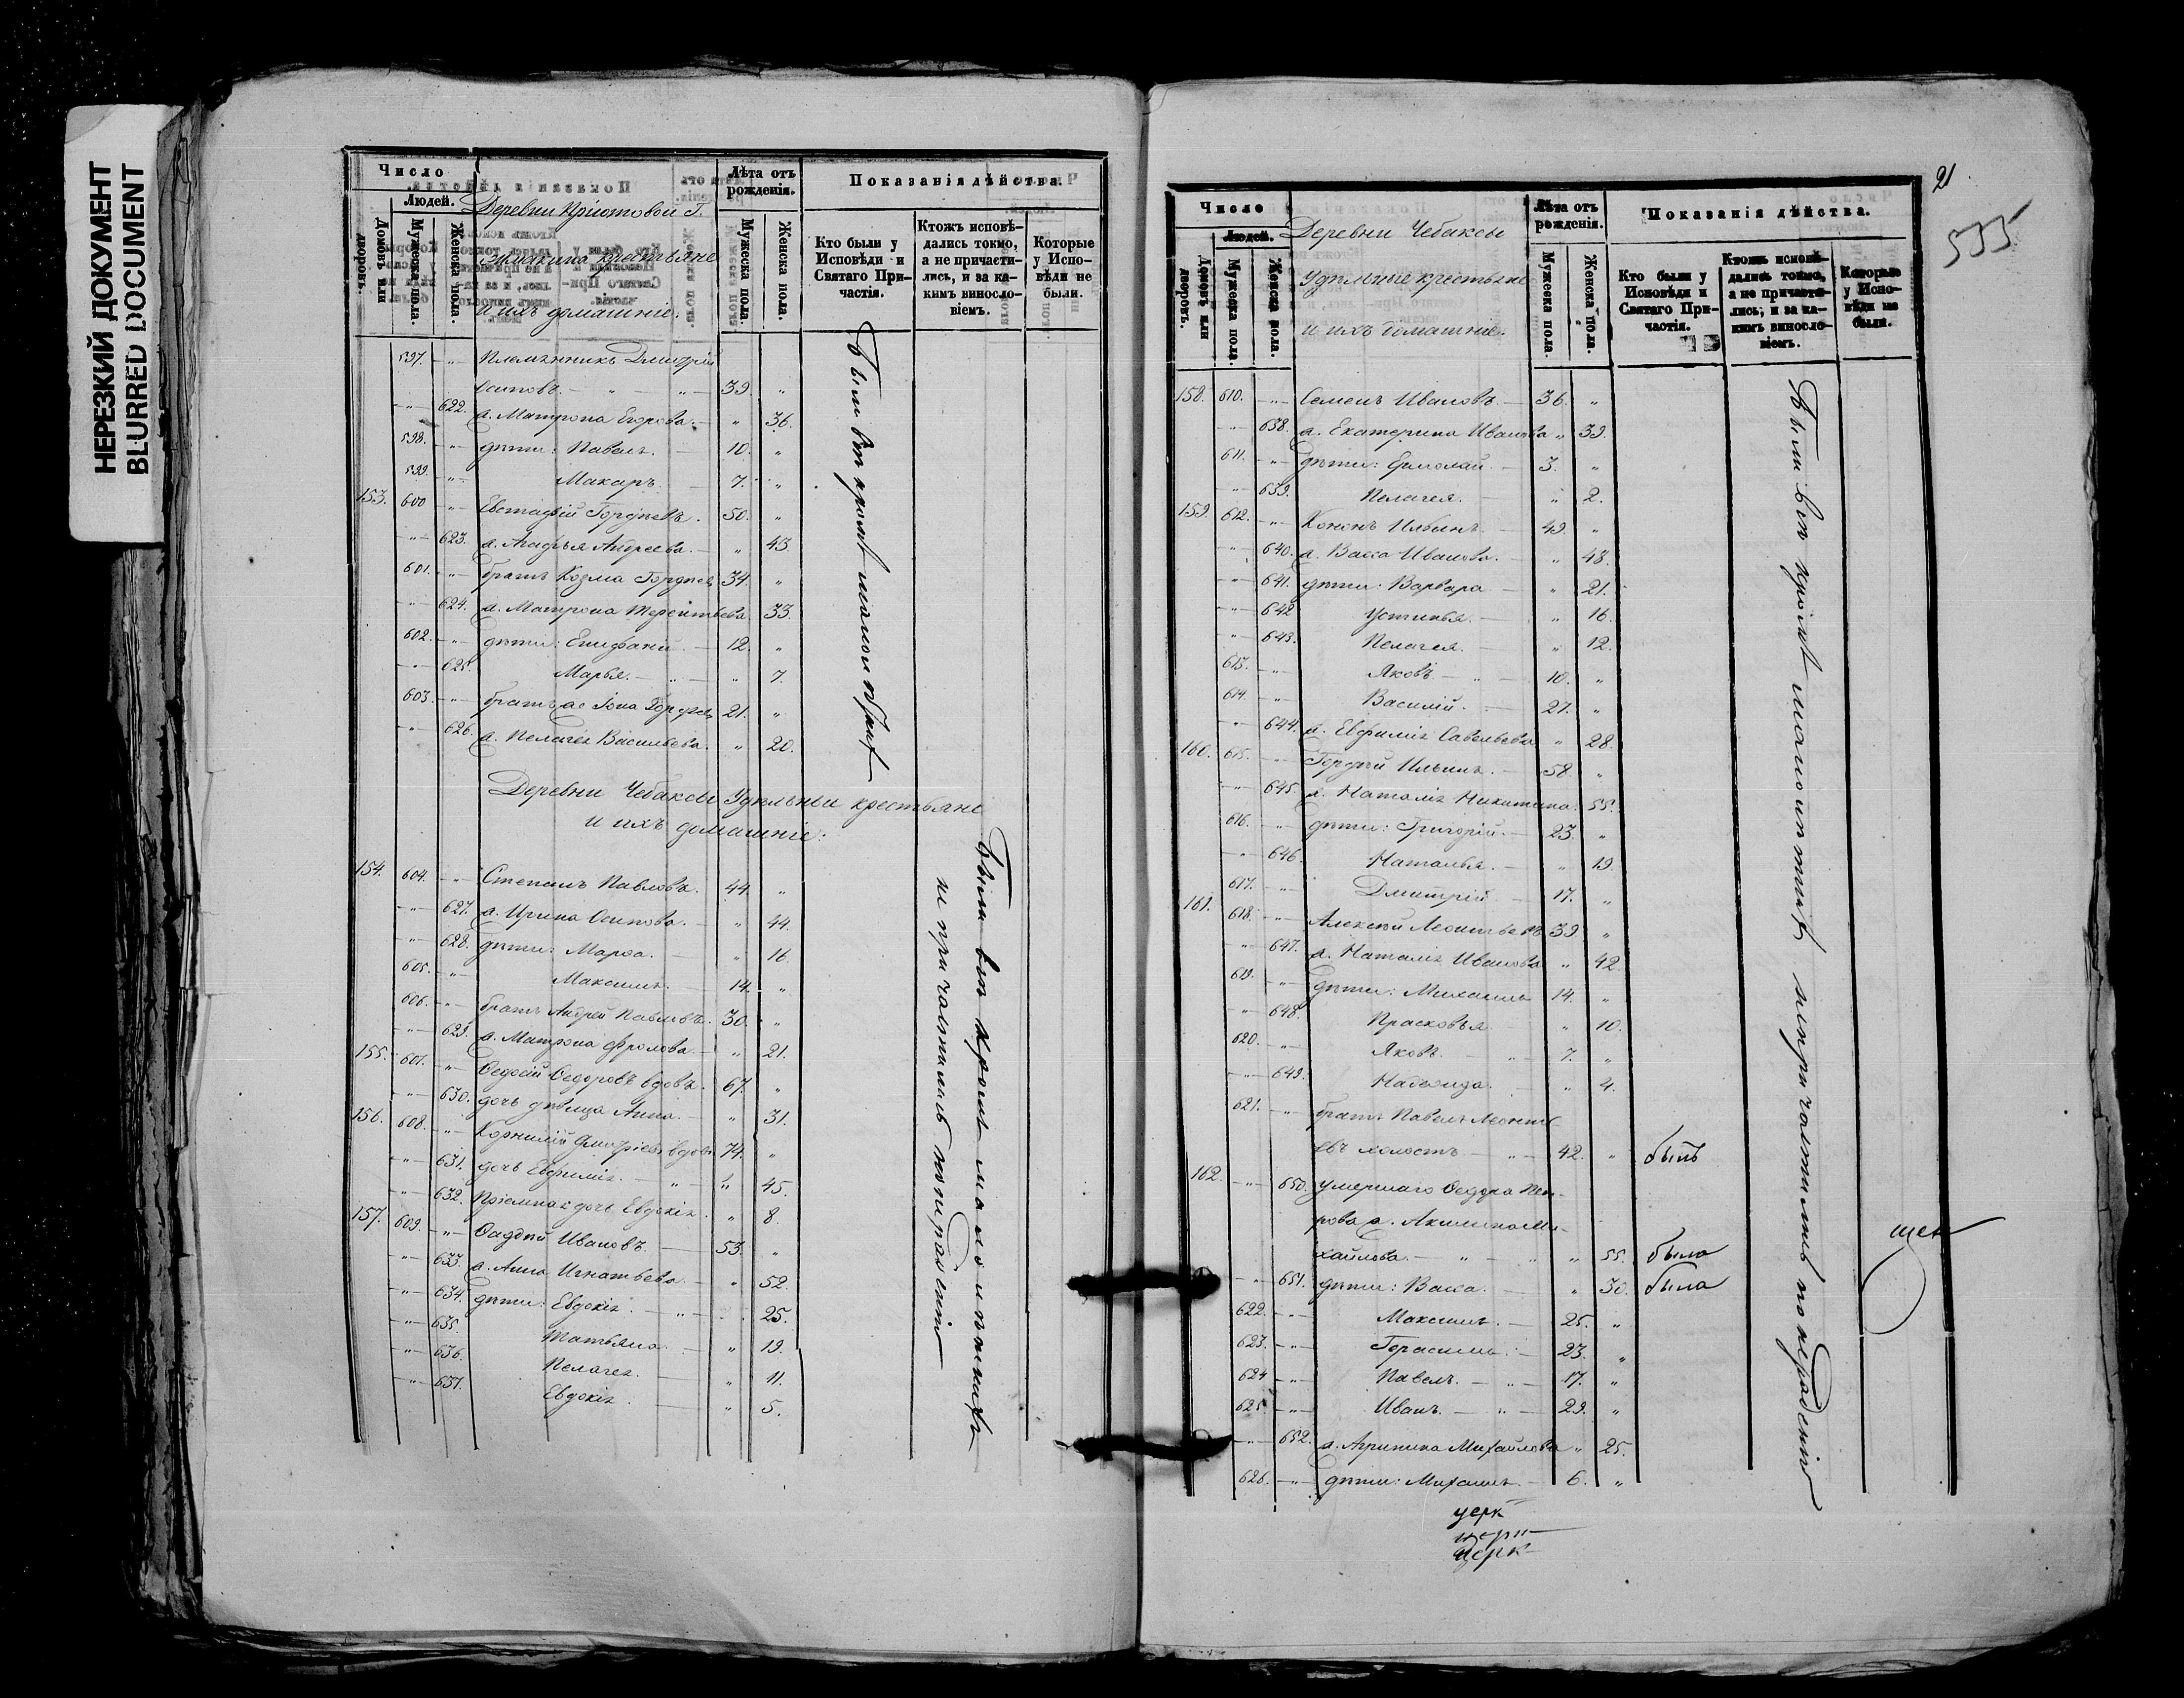 НЕРЕЗКИЙ ДОКУМЕНТ
BLURRED DOCUMENT
Число
Людей.
Домовъ или дворовъ.
Мужеска пола.
Женска пола.
Деревни Г.
крестьяне
и ихъ домашніе.
Лѣта отъ рожденія.
Мужеска пола.
Женска пола.
Показанія дѣйства.
Кто были у Исповѣди и Святаго Причастія.
Ктожъ исповѣдались токмо, а не причастились, и за какимъ винословіемъ.
Которые у Исповѣди не были.
597. -"- Племянникъ Дмитрій
Осиповъ. - " - 39. "
-"- 622. ж. Матрона Егорова. - " 36.
598. -"- дѣти: Павелъ. - 10. "
599. -"- Макаръ. - 7. "
153. 600 -"- Евстафій Гордѣевъ. 50. "
-"- 623. ж. Агафья Андреева. - " 43.
601. -"- братъ Козма Гордѣевъ 34. "
-"- 624. ж. Матрона Терентьева. 33.
602. -"- дѣти: Епифаній. - 12. "
-"- 625. Марья. - " - " 7.
603. -"- братъ Іона Гордѣевъ 21. "
-"- 626. ж. Пелагея Васильева. " 20.
Были всѣ кромѣ
Деревни Чебаксы Удѣльные крестьяне
и ихъ домашніе.
154. 604. -"- Степанъ Павловъ. 44. "
-"- 627. ж. Ирина Осипова. - " 44.
-"- 628. дѣти: Марѳа. - " 16.
605. -"- Максимъ. - 14. "
606. -"- братъ Андрей Павловъ. 30. "
-"- 629. ж. Матрона Фролова. - " 21.
155. 607. -"- Ѳедосій Ѳедоровъ вдовъ. 67. "
-"- 630. дочь дѣвица Анна. - " 31.
156. 608. -"- Корнилій Дмитріевъ вдовъ 74. "
-"- 631. дочь Евфимія. - " - " 45.
-"- 632. Пріемная дочь Евдокія. " 8.
157. 609. -"- Ѳаддей Ивановъ. - 53. "
-"- 633. ж. Анна Игнатьева. - " 52.
-"- 634. дѣти: Евдокія. - " - 25.
-"- 635. Татьяна. - " 19.
-"- 636. Пелагея. - " 11.
-"- 637. Евдокія. - " 5.
Были всѣ кромѣ малолѣтнихъ
не причастились по нерадѣнію
21
535
Число
Людей.
Домовъ или дворовъ.
Мужеска пола.
Женска пола.
Деревни Чебаксы
Удѣльные крестьяне
и ихъ домашніе.
Лѣта отъ рожденія.
Мужеска пола.
Женска пола.
Показанія дѣйства.
Кто были у Исповѣди и Святаго Причастія.
Ктожъ исповѣдались токмо, а не причастились, и за какимъ винословіемъ.
Которые у Исповѣди не были.
158. 610. -"- Семенъ Ивановъ. - 36. "
-"- 638. ж. Екатерина Иванова " 39.
611. -"- дѣти: Ермолай. - 3. "
-"- 639. Пелагея. - " 2.
159. 612. -"- Кононъ Ильинъ. - 49. "
-"- 640. ж. Васса Иванова. - " 48.
-"- 641. дѣти: Варвара - " 21.
-"- 642 Устинья. - " 16.
-"- 643. Пелагея. - " 12.
615. -"- Яковъ - " - 10. "
614. -"- Василій. - 27. "
-"- 644. ж. Евфимія Савельева " 28.
160. 615. -"- Гордѣй Ильинъ. - 58. "
-"- 645. ж. Наталія Никитина. 55.
616. -"- дѣти: Григорій. - 23. "
-"- 646. Наталья. - " 19.
617. -"- Дмитрій. - 17. "
161. 618. -"- Алексѣй Леонтьевъ 39. "
-"- 647. ж. Наталія Иванова " 42.
619. -"- дѣти: Михаилъ 14. "
-"- 648. Прасковья. - " 10.
620. -"- Яковъ. - " - 7. "
-"- 649. Надежда. - " 4.
621. -"- братъ Павелъ Леонть
евъ холостъ - " - 42. " былъ
162. -"- 650. умершаго Ѳедора Пет-
рова ж. Акилина Ми-
хайлова. - " - " 55. была
-"- 651. дѣти: Васса. - " 30. была
622. -"- Максимъ. - 25. "
623. -"- Герасимъ. - 23. "
624 -"- Павелъ. - " - 17. "
625. -"- Иванъ. - " - 29. "
-"- 652. ж. Агрипина Михайлова " 25.
626. -"- дѣти: Михаилъ. - 6. "
Были всѣ кромѣ малолѣтнихъ не причастились по нерадѣнію
церк
церк
церк